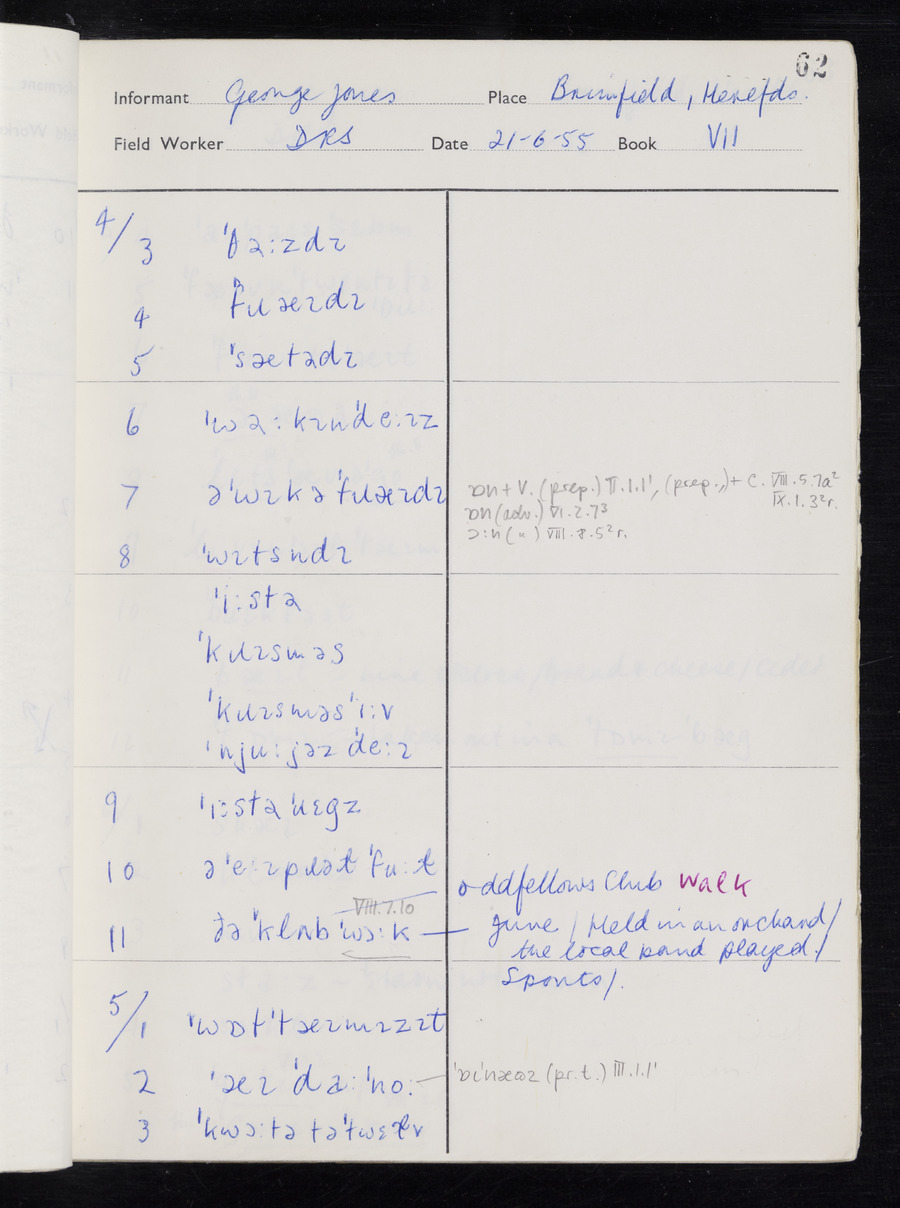 62
Informant George Jones Place Brimfield, Herefds.
Field Worker DRS Date 21-6-55 Book VII
4/3 ˈθəːzdɪ
4 ˈfɹaɪdɪ
5 ˈsætədɪ
6 ˈwəːkɪnˈdeːɪz
7 əˈwɪk əˈfɹaɪdɪ ɒn + V. (prep.) II.1.1', (prep.,) + C. VIII.5.7a²
IX.1.3²r.
ɒn (adv.) VI.2.7³
ɔːn ( " ) VIII.8.5²r.
8 ˈwɪtsndɪ
ˈiːstə
ˈkɹɪsməs
ˈkɹɪsməsˈiːv
ˈnjuːjəzˈdeːɪ
9 ˈiːstəˈɹɛgz
10 əˈeːɪpɹət ˈfuːt
oddfellows Club walk
VIII.7.10
11 ðə ˈklʌb ˈwɔːk — June / Held in an orchard /
the local band played. /
Sports /.
5/1 ˈwɒt ˈtaɪm ɪz ɪt
2 ˈaɪ ˈdəːˈnoː — (pr.t.) III.1.1'
3 ˈkwɔːtə təˈtwɛlv